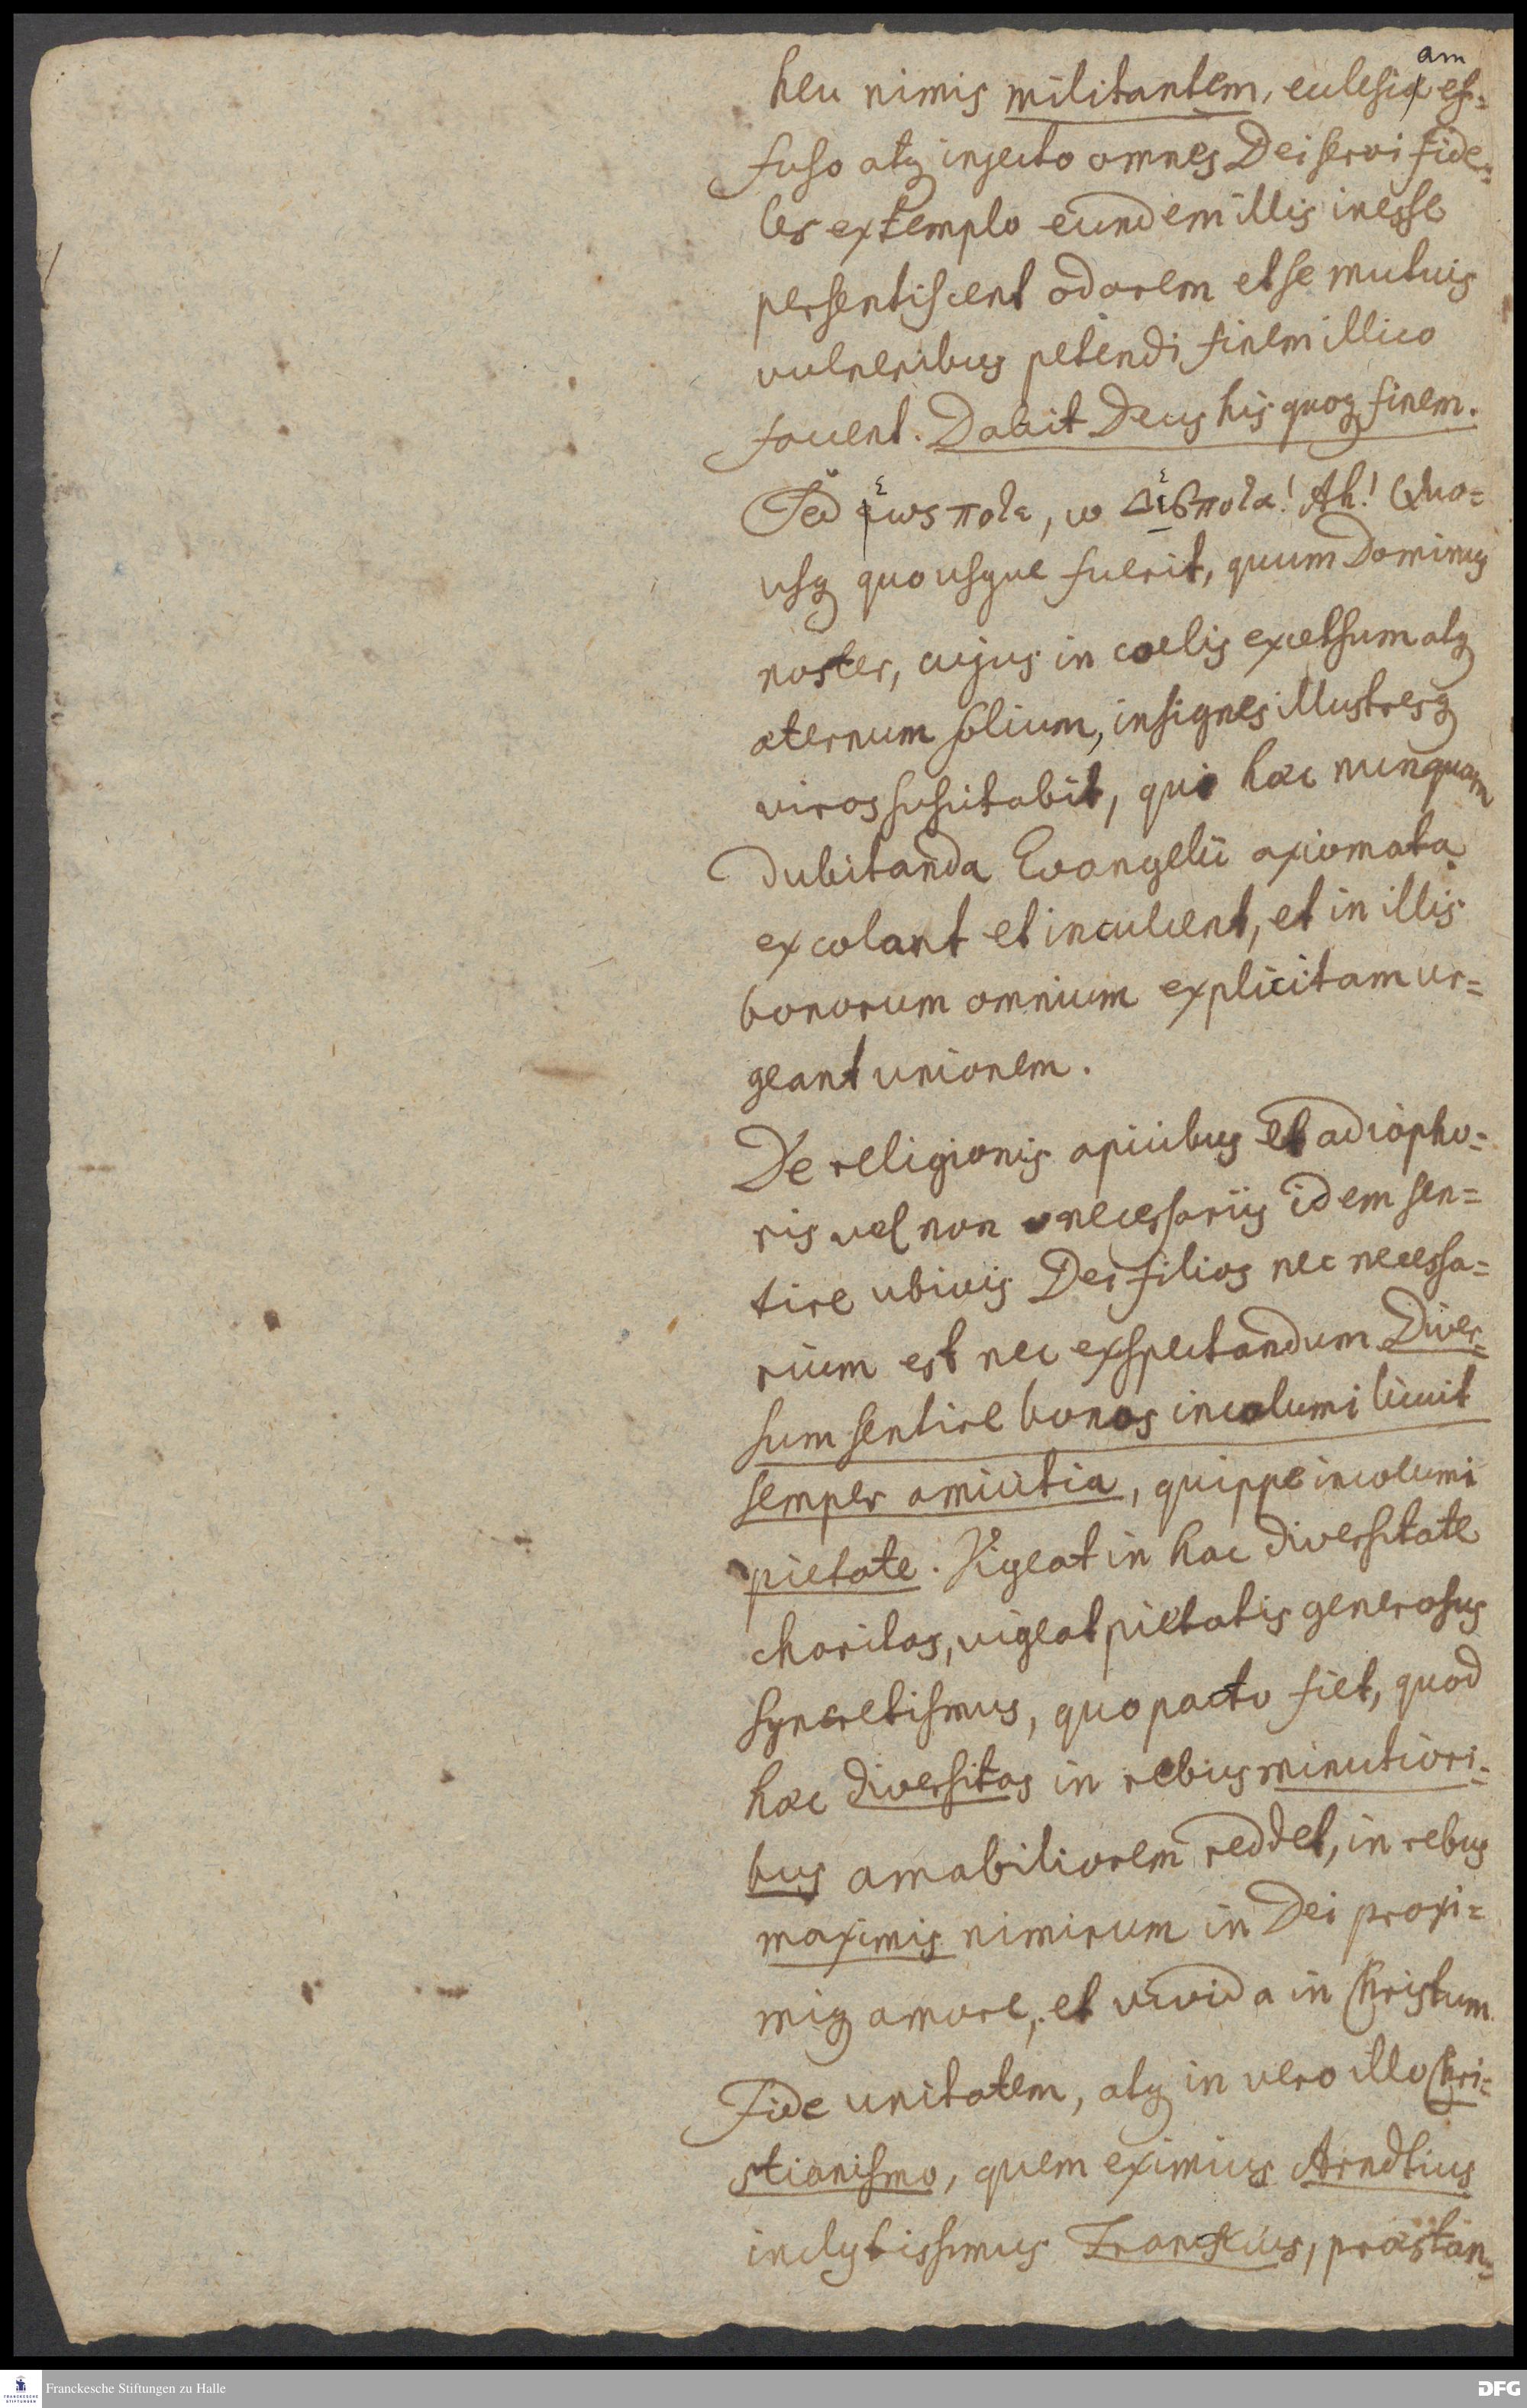 am
heu nimis militantem, ecclesiæ ef=
fuso atq injecto omnes Dei servi fide=
les extemplo eundem illis inesse
persentiscent odorem et se mutuis
vulneribus petendi finem illico
facient. Dabit Deus his quoq finem.
Sed ἕως ποτε, ω Δέσποτα! Ah! Quo=
usq quousque fuerit, quum Dominus
noster, cujus in coelis excelsum atq
æternum solium, insignes illustresq
viros suscitabit, qui hæc nunquam
dubitanda Evangelii axiomata
excolant et inculcent, et in illis
bonorum omnium explicitam ur=
geant unionem.
De religionis apicibus et adiapho=
ris vel non necessariis idem sen=
tire ubivis Dei filios nec necessa=
rium est nec exspectandum Diver=
sum sentire bonos incolumi licuit
semper amicitia, quippe incolumi
pietate. Vigeat in hac diversitate
charitas, vigeat pietatis generosus
syncretismus, quo pacto fiet, quod
hæc diversitas in rebus minutiori=
bus amabiliorem reddet, in rebus
maximis nimirum in Dei proxi=
miq amore, et vivida in Christum
Fide unitatem, atq in vero illo Chri=
stianismo, quem eximius Arndtius
inclytissimus Franckius, præstan=
Franckesche Stiftungen zu Halle
DFG